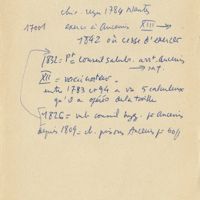 chir. reçu 1784 Nantes
17001 exerce à Ancenis XIII →
1842 où cesse d'exercer
1832 = Pt conseil salub. arrt Ancenis
→ mt.
XII = vaccinateur =
entre 1783 et 94 a vu 5 calculeux
qu'il a opérés de la taille
1826 = mb conseil hyg. jc Ancenis
depuis 1809 = ch. prisons Ancenis jc 60 f